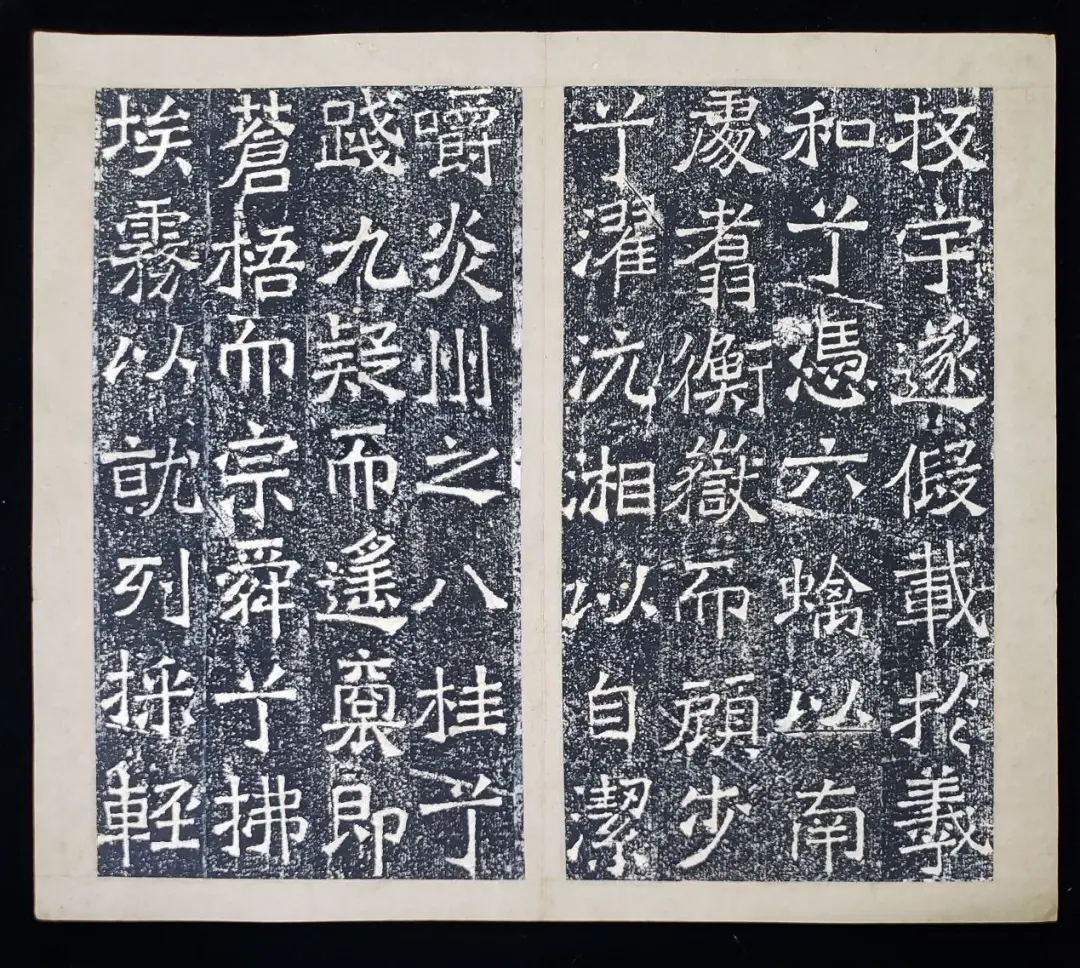 宇遂假載於羲
和兮憑六螭以南
處翥衡嶽而顧步
兮濯沅湘以自潔
嚼炎州之八桂兮
踐九疑而遙即
蒼梧而宗舜兮拂
埃霧以就列採輕